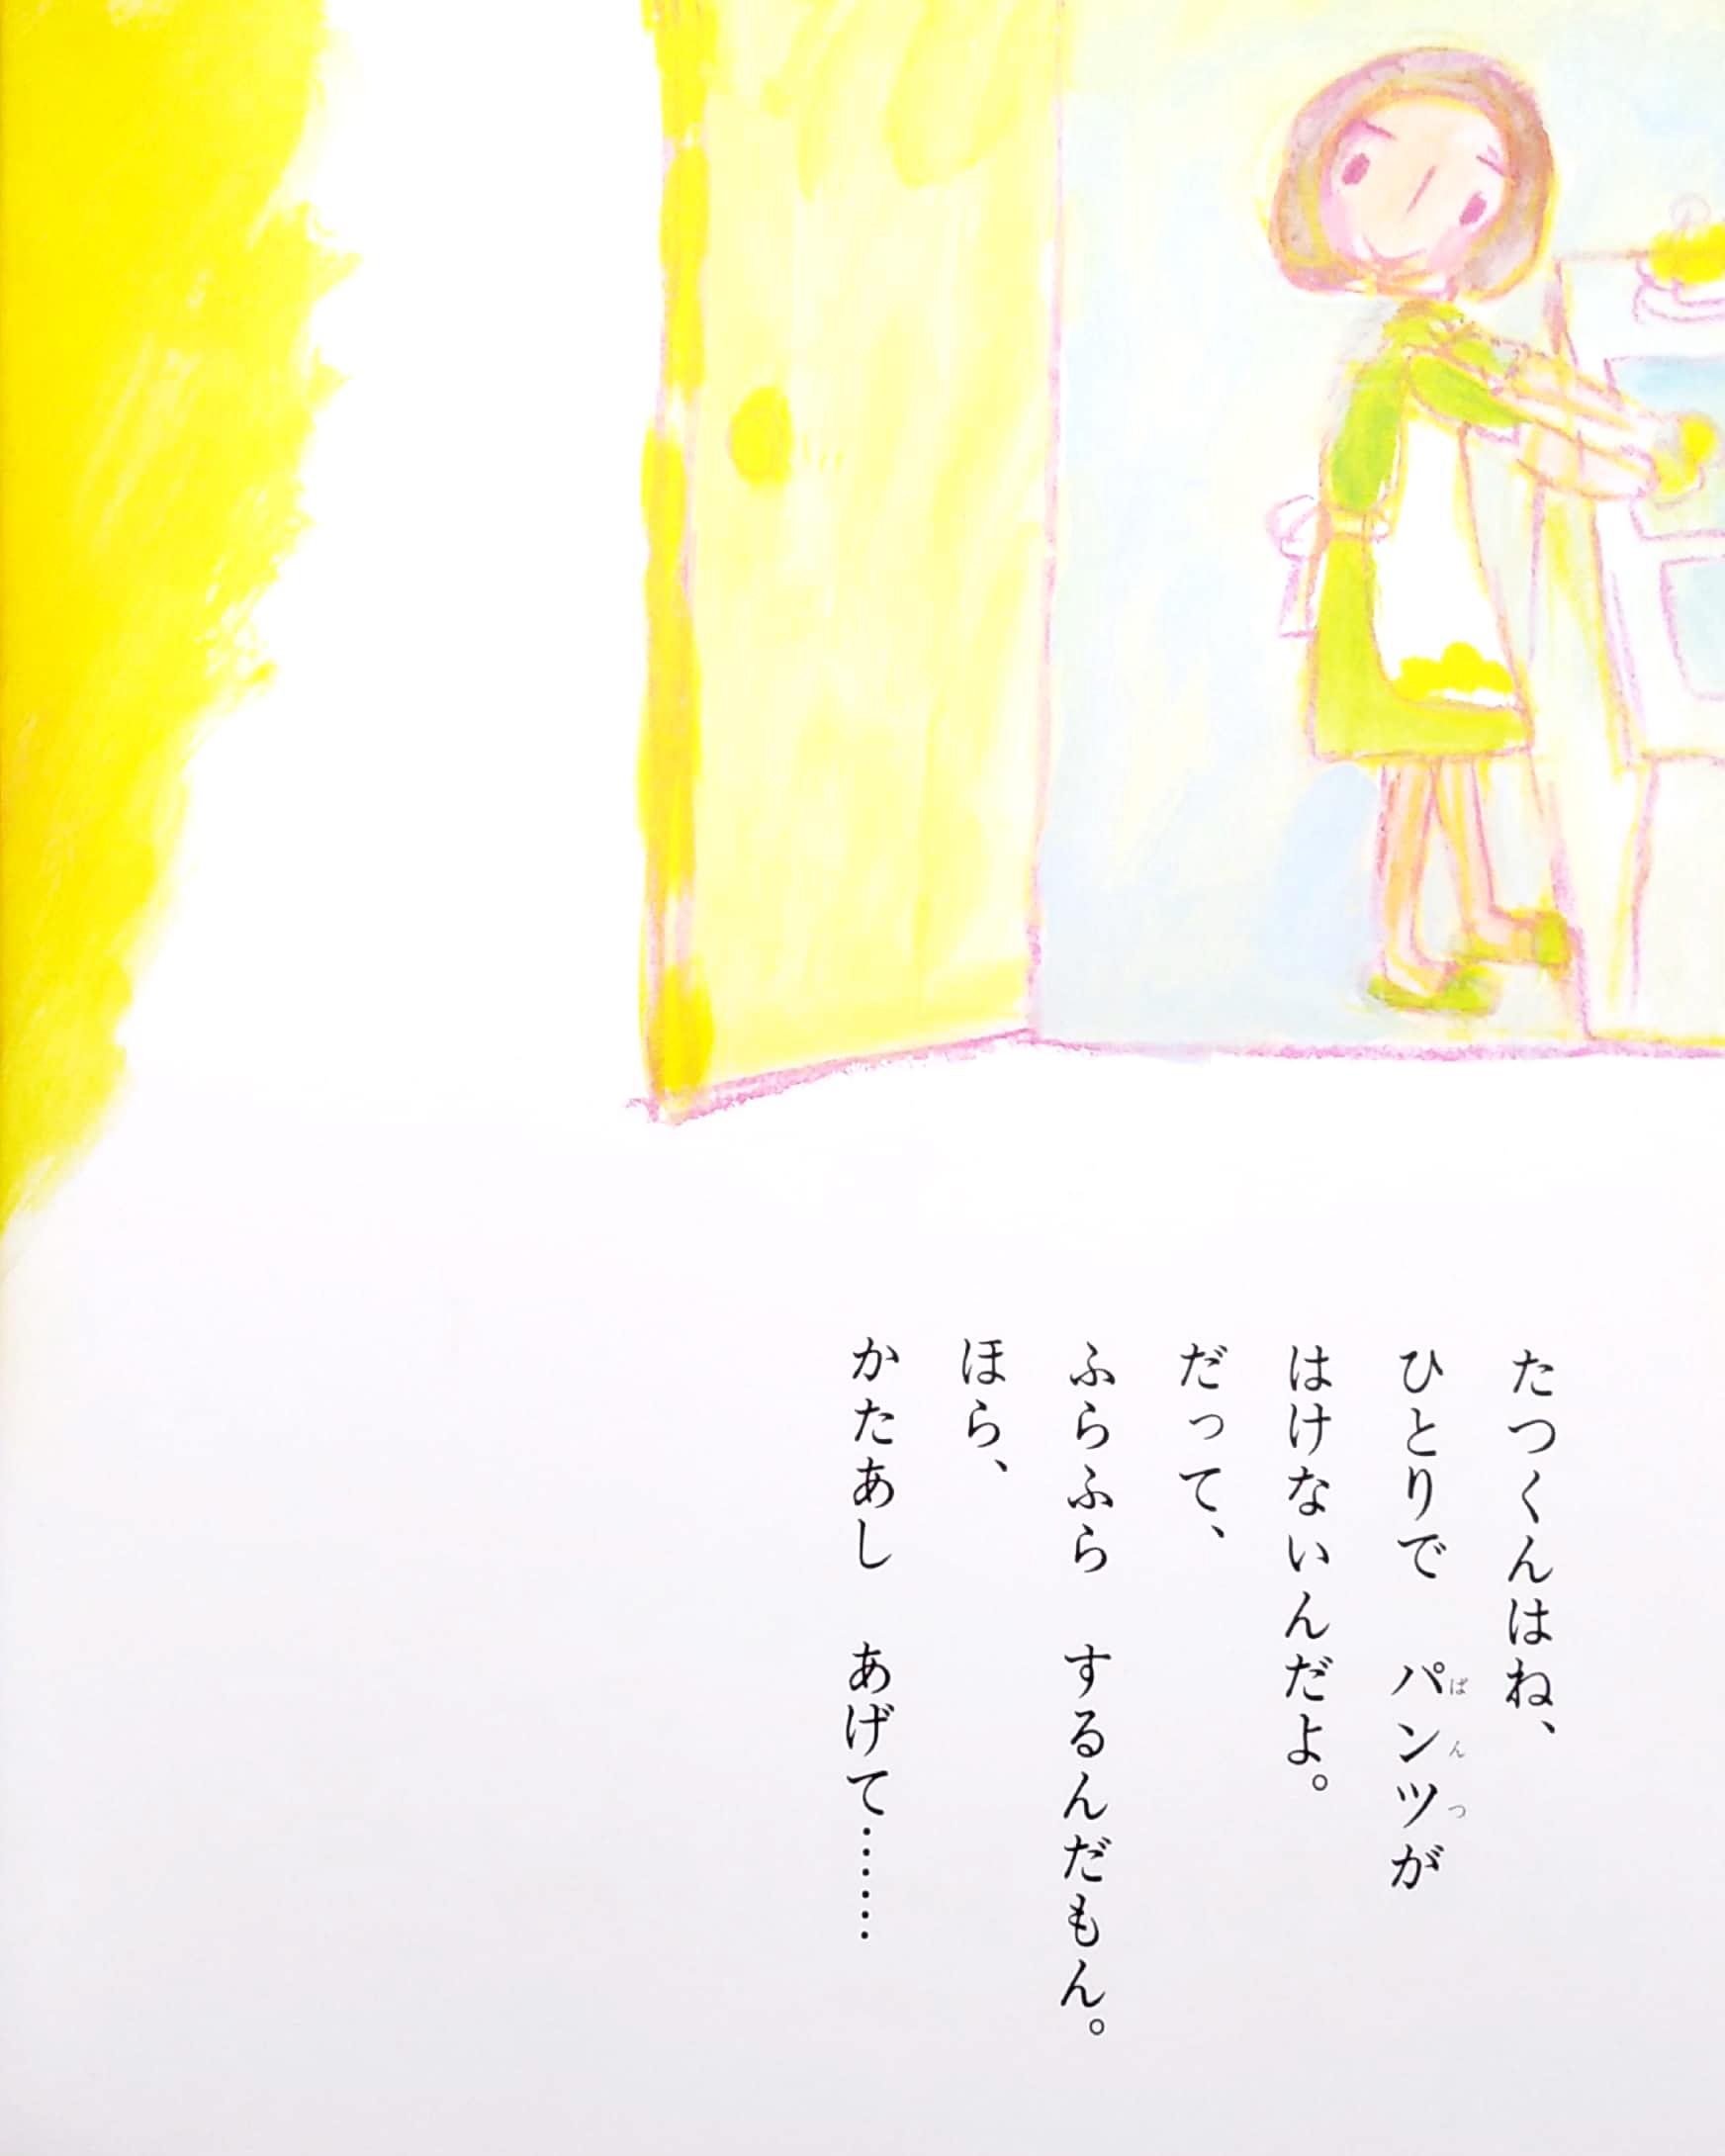 たつくんはね、
ひとりで　パンツが
ぱんつ
はけないんだよ。
だって、
ふらふら　するんだもん。
ほら、
かたあし　あげて……